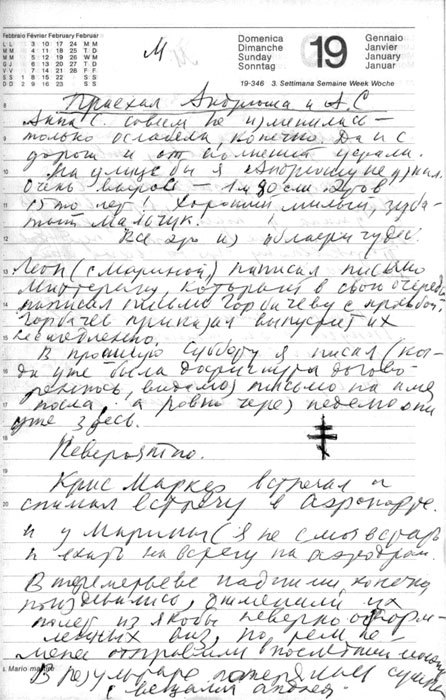 Febbraio Février February Februar
L L 3 10 17 24 M M
M M 4 11 18 25 D T
M M 5 12 19 26 M W
G J 6 13 20 27 D T
V V 7 14 21 28 F F
S S 1 8 15 22 S S
D D 2 9 16 23 S S
М
Domenica
Dimanche
Sunday
Sonntag
19
Gennaio
Janvier
January
Januar
19-346 3. Settimana Semaine Week Woche
8
Приехал Андрюша и А.С
Анна С. совсем не изменилась –
9
только ослабела, конечно. Да и с
дороги и от волнений устали.
10
На улице бы я Андрюшу не узнал.
Очень вырос – 1м 80см
11
15то лет! Хороший милый,
мальчик.
12
Все это из области чудес.
13
Леон (с Мариной) написал письмо
14
Миттерану, который в свою очередь
написал письмо Горбачеву с просьбой,
15
Горбачев приказал выпустить их
немедленно.
16
В прошлую субботу я писал (ког-
да уже была
видимо) письмо на имя
17
посла, а ровно через неделю они
уже здесь.
18
Невероятно.
19
Крис Маркер встречал и
20
снимал встречу в аэропорте.
и у Марины (я не смог встать
и ехать на встречу на аэродром.
В Шереметьеве конечно
поиздевались, отменили их
полет из якобы неверно оформ-
ленных виз, но тем не
менее отправили
В результате
с вещами
i. Mario